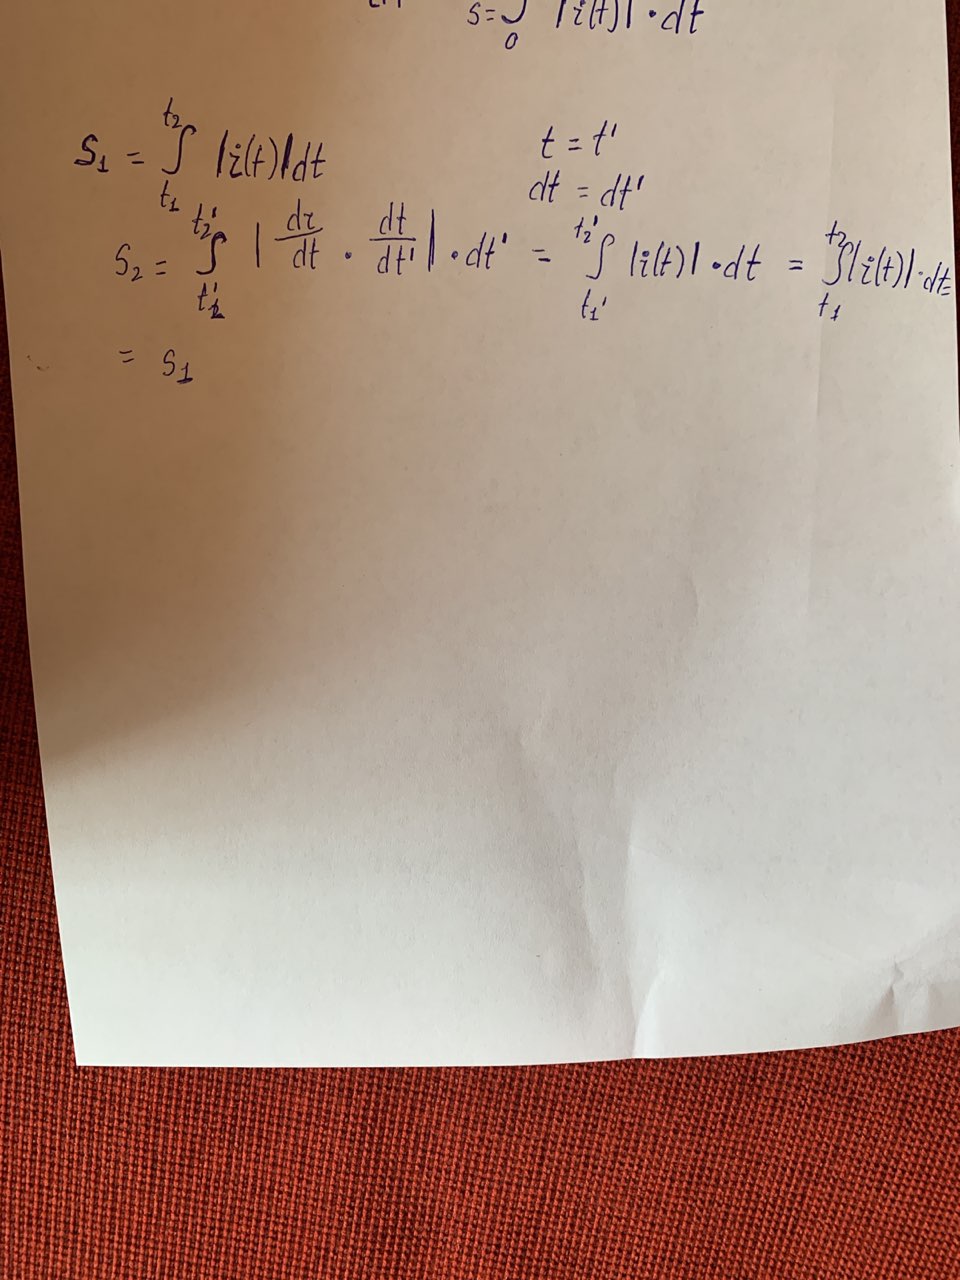 S = ∫₀ |ṙ(t)| · dt
S₁ = ∫_{t₁}^{t₂} |ṙ(t)| dt
t = t'
dt = dt'
S₂ = ∫_{t₁'}^{t₂'} | dr/dt · dt/dt' | · dt' = ∫_{t₁'}^{t₂'} |ṙ(t)| · dt = ∫_{t₁}^{t₂} |ṙ(t)| · dt =
= S₁